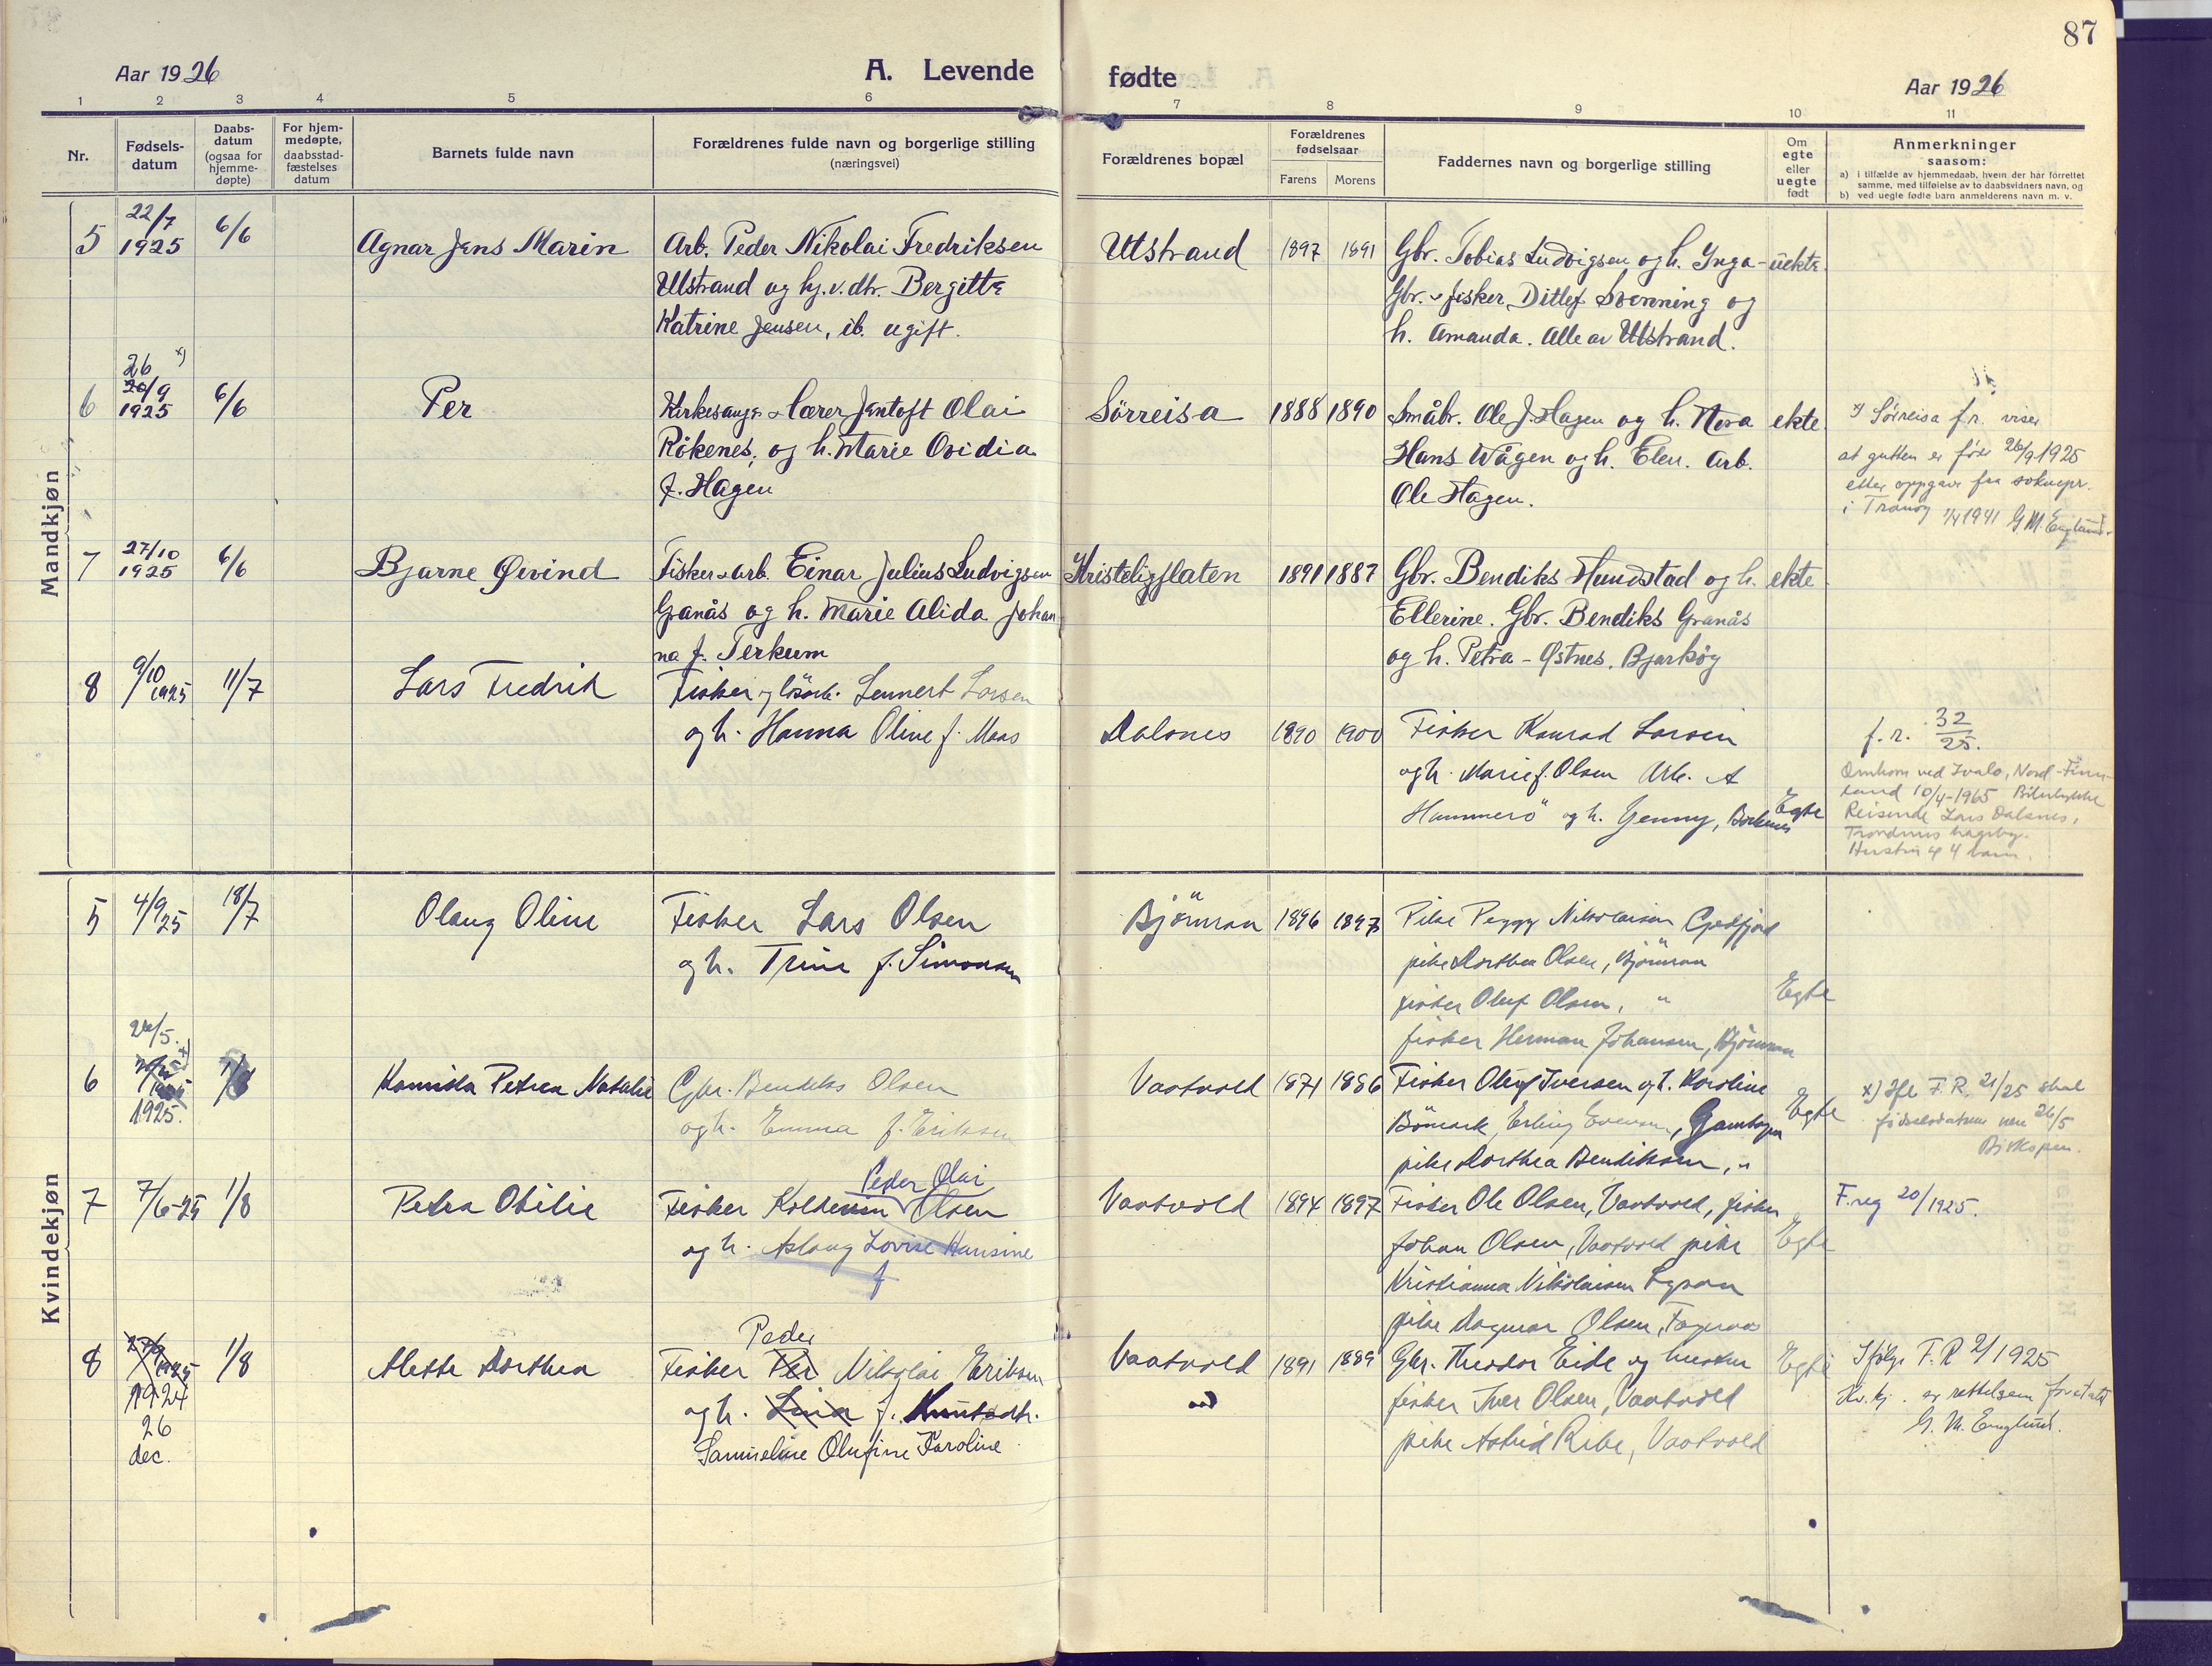 87
Aar 1926
A. Levende
fødte
Aar 1926
1 2 3 4 5 6 7 8 9 10 11
Nr.
Fødsels-
datum
Daabs-
datum
(ogsaa for
hjemme-
døpte)
For hjem-
medøpte,
daabsstad-
fæstelses
datum
Barnets fulde navn
Forældrenes fulde navn og borgerlige stilling
(næringsvei)
Forældrenes bopæl
Forældrenes
fødselsaar
Farens Morens
Faddernes navn og borgerlige stilling
Om
egte
eller
uegte
født
Anmerkninger
saasom:
a) i tilfælde av hjemmedaab, hvem der har forrettet
samme, med tilføielse av to daabsvidners navn, og
b) ved uegte fødte barn anmelderens navn m. v.
Mandkjøn
5 22/7 1925 6/6 Agnar Jens Marin
Arb. Peder Nikolai Fredriksen
Utstrand og hj.v.dtr. Bergitte
Katrine Jensen, ib. ugift.
Utstrand 1897 1891
Gbr. Tobias Ludvigsen og h. Inga - uekte
Gbr. & fisker Ditlef Svenning og
h. Amanda. Alle av Utstrand.
6 26 x)
20/9 1925 6/6 Per
Kirkesang. & lærer Jentoft Olai
Røkenes, og h. Marie Ovidia
f. Hagen
Sørreisa 1888 1890
Småbr. Ole J. Hagen og h. Nora ekte
Hans Wågen og h. Elen. Arb.
Ole Hagen.
x) Sørreisa f.r. viser
at gutten er født 26/9 1925
etter oppgave fra soknepr.
i Tranøy 1/4 1941 G.M. Englund.
7 27/10 1925 6/6 Bjarne Øivind
Fisker & arb. Einar Julius Ludvigsen
Granås og h. Marie Alida Johan
na f. Terkum
Kristeligflaten 1891 1887
Gbr. Bendiks Hundstad og h. ekte
Ellerine. Gbr. Bendiks Granås
og h. Petra - Østnes, Bjarkøy
8 9/10 1925 11/7 Lars Fredrik
Fisker og Lennert Larsen
og h. Hanna Oline f. Maas
Dalsnes 1890 1900
Fisker Konrad Larsen
og h. Marie f. Olsen Arb. A
Hammerö og h. Jenny, Borkenes Egte
f. r. 32/25.
Omkom ved Ivalo, Nord-Finn-
land 10/4-1965 Bilulykke
Reisende Lars Dalsnes,
Trondenes
Hustru og 4 barn.
Kvindekjøn
5 4/9 25 18/7 Olaug Oline
Fisker Lars Olsen
og h. Trine f. Simonsen
Björnraa 1896 1897
Pike Peggy Nikolaisen Gjedfjord
pike Dorthea Olsen, Björnraa
fisker Oluf Olsen, " Egte
fisker Herman Johansen, Björnraa
6 26/5. x)
1925. Kamida Petrea Natalie
Gbr. Bendiks Olsen
og h. Emma f. Eriksen
Vaatvold 1871 1886
Fisker Oluf Iversen og h. Karoline
Erling Evensen, Egte
pike Dorthea Bendiksen, "
x) Ifl F.R. 21/25 skal
fødselsdatum være 26/5
Biskopen.
7 7/6-25 1/8 Petra Otilie
Peder Olai
Fisker Olsen
og h. Aslaug Lovise Hansine
f
Vaatvold 1894 1897
Fisker Ole Olsen, Vaatvold, fisker
Johan Olsen, Vaatvold pike Egte
Kristianna Nikolaisen
pike Dagmar Olsen,
F.reg 20/1925.
8 1925 1/8 Alette Dorthea
1924
26
dec.
Peder
Fisker Per Nikolai Eriksen
og h. Lina f. Knutsdtr.
Samueline Olufine Karoline
Vaatvold 1891 1889
Gbr. Theodor Eide og hustru Egte
fisker Iver Olsen, Vaatvold
pike Astrid Ribe, Vaatvold
Ifølge F.R 2/1925
Kv. kj. er rettelsen foretatt
G. M. Englund.